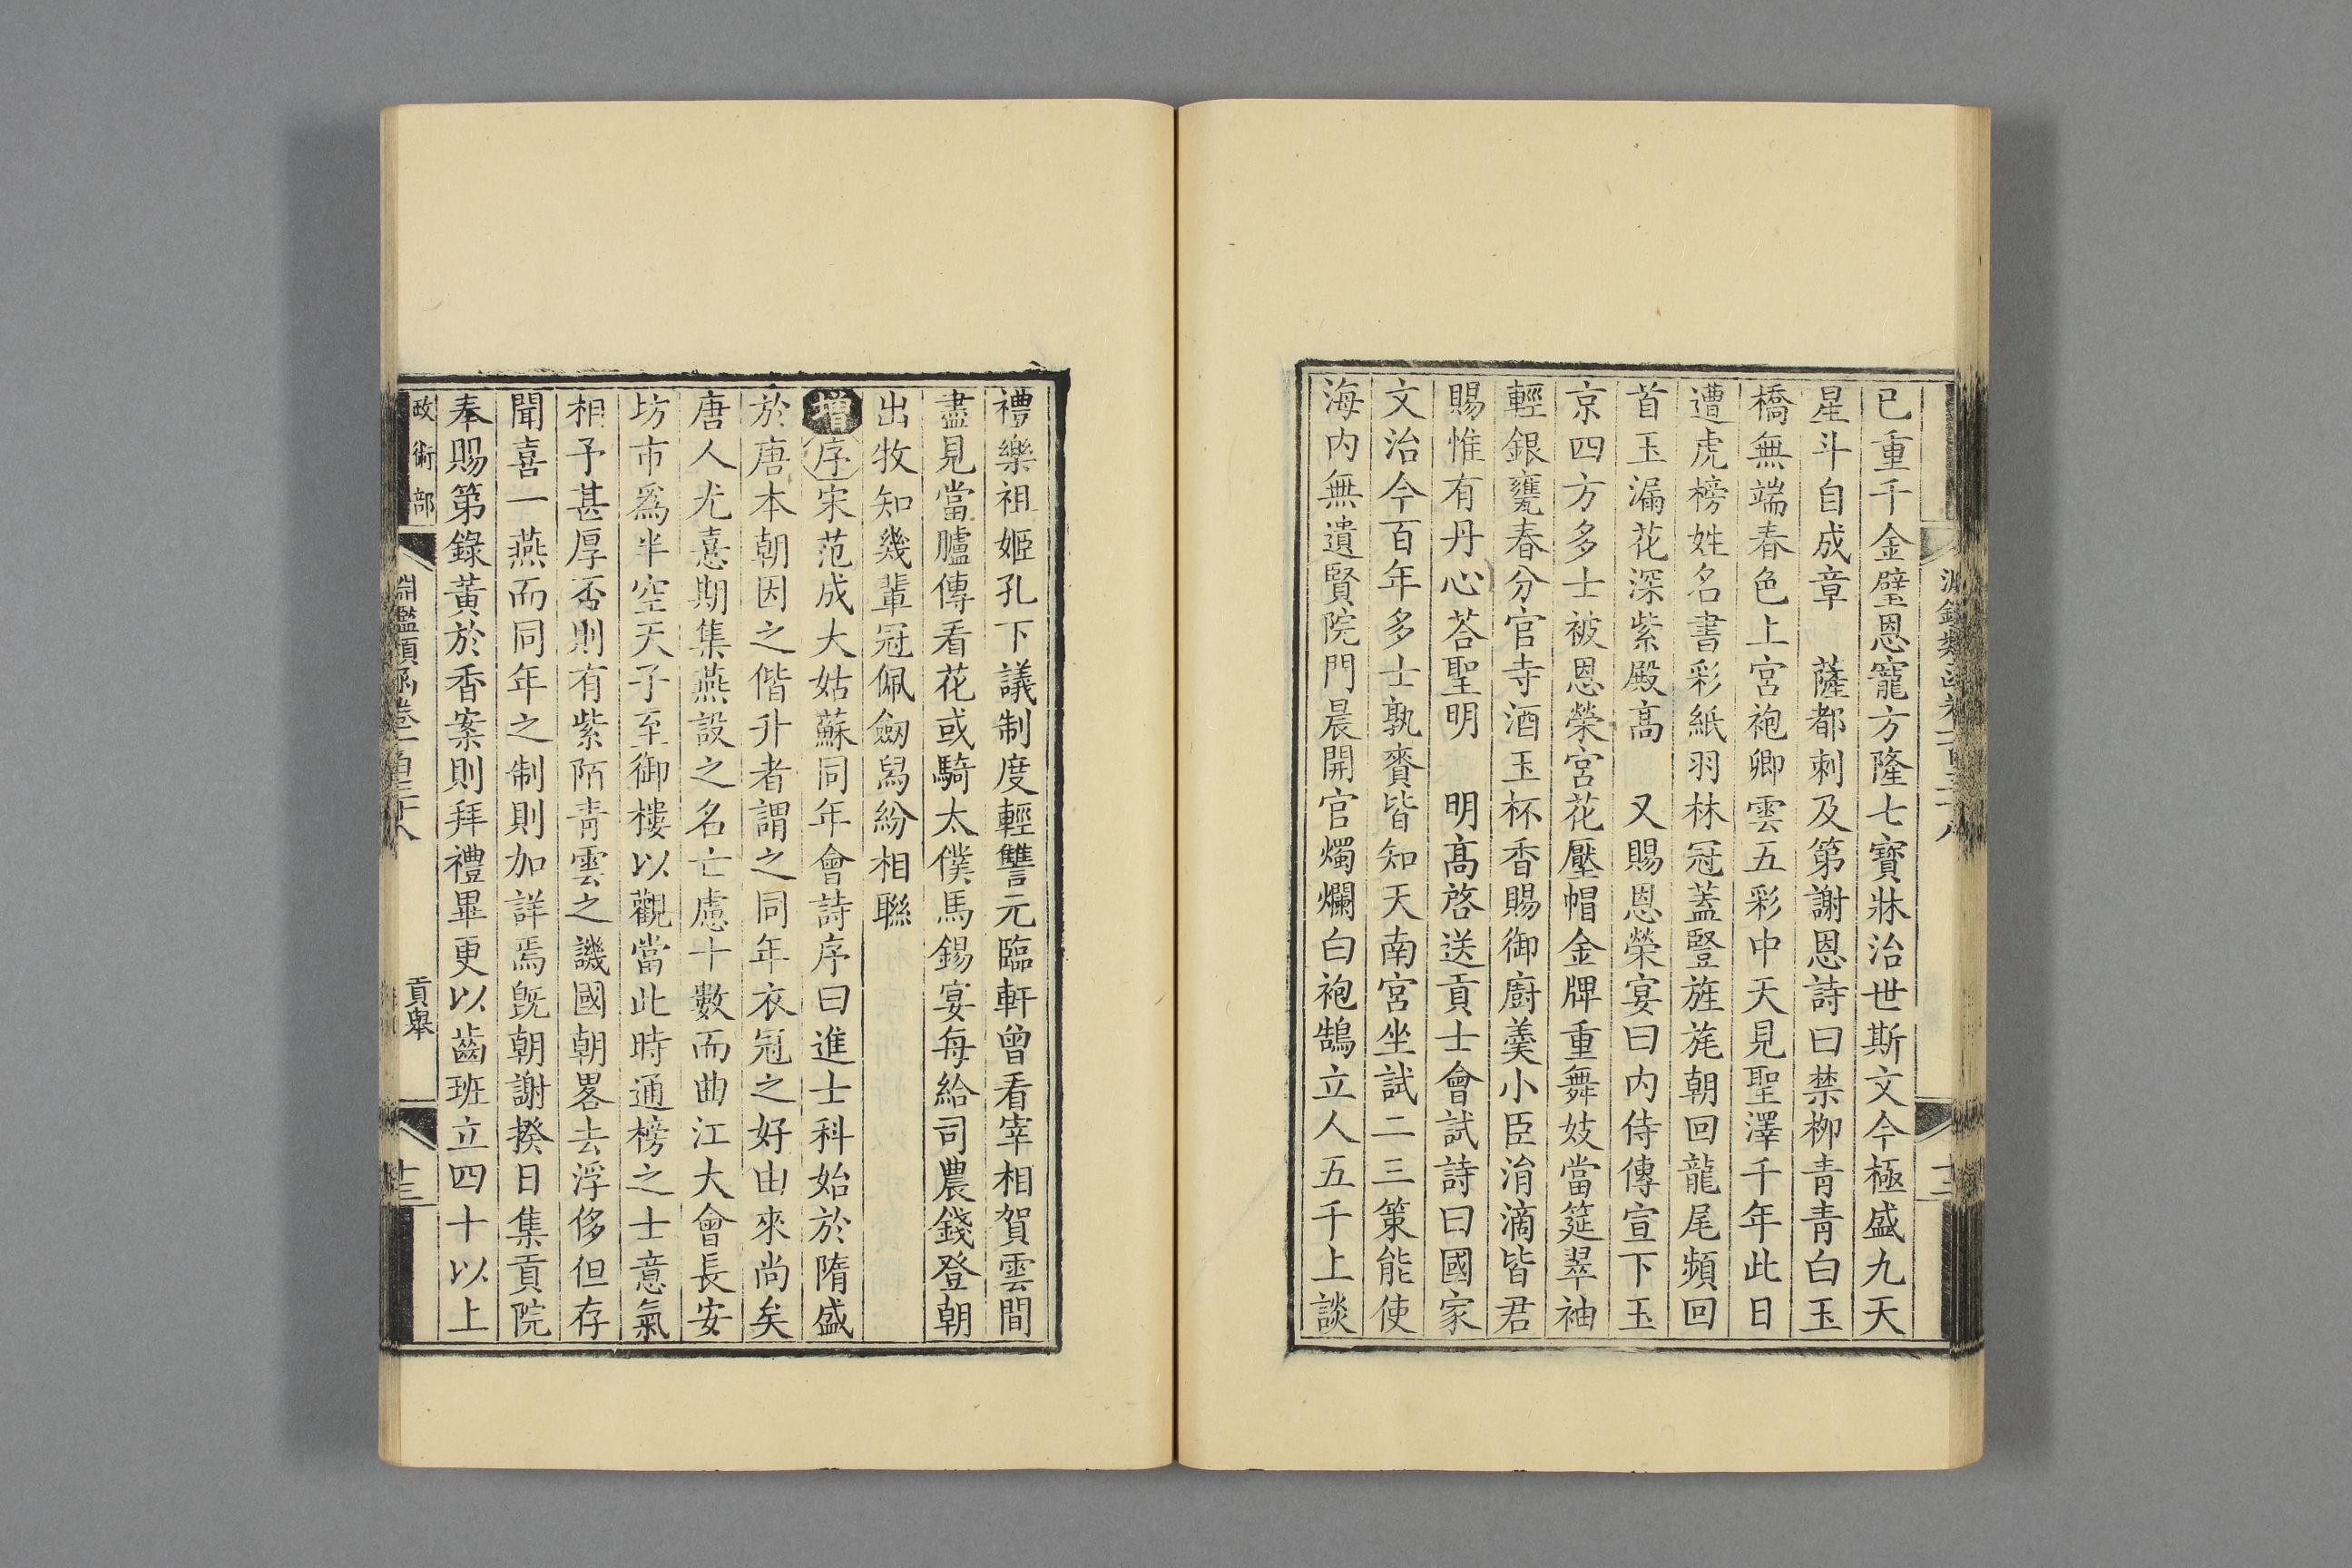 已重千金璧恩寵方隆七寶牀治世斯文今極盛九天
星斗自成章　薩都刺及第謝恩詩曰禁柳青青白玉
橋無端春色上宮袍卿雲五彩中天見聖澤千年此日
遭虎榜姓名書彩紙羽林冠蓋豎旌旄朝回龍尾頻回
首玉漏花深紫殿高　又賜恩榮宴曰内侍傳宣下玉
京四方多士被恩榮宮花壓帽金牌重舞妓當筵翠袖
輕銀甕春分官寺酒玉杯香賜御廚羹小臣涓滴皆君
賜惟有丹心荅聖明　明高啓送貢士會試詩曰國家
文治今百年多士孰賚皆知天南宮坐試二三策能使
海内無遺賢院門晨開官燭爛白袍鵠立人五千上談
禮樂祖姬孔下議制度輕讐元臨軒曾看宰相賀雲間
盡見當臚傳看花或騎太僕馬錫宴每給司農錢登朝
出牧知幾輩冠佩劒舄紛相聯
增序宋范成大姑蘇同年會詩序曰進士科始於隋盛
於唐本朝因之偕升者謂之同年衣冠之好由來尚矣
唐人尤憙期集燕設之名亡慮十數而曲江大會長安
坊市爲半空天子至御樓以觀當此時通榜之士意氣
相予甚厚否則有紫陌青雲之譏國朝畧去浮侈但存
聞喜一燕而同年之制則加詳焉旣朝謝揆日集貢院
奉賜第錄黃於香案則拜禮畢更以齒班立四十以上
政術部　淵鑑類函卷一百三十八　貢舉　十三